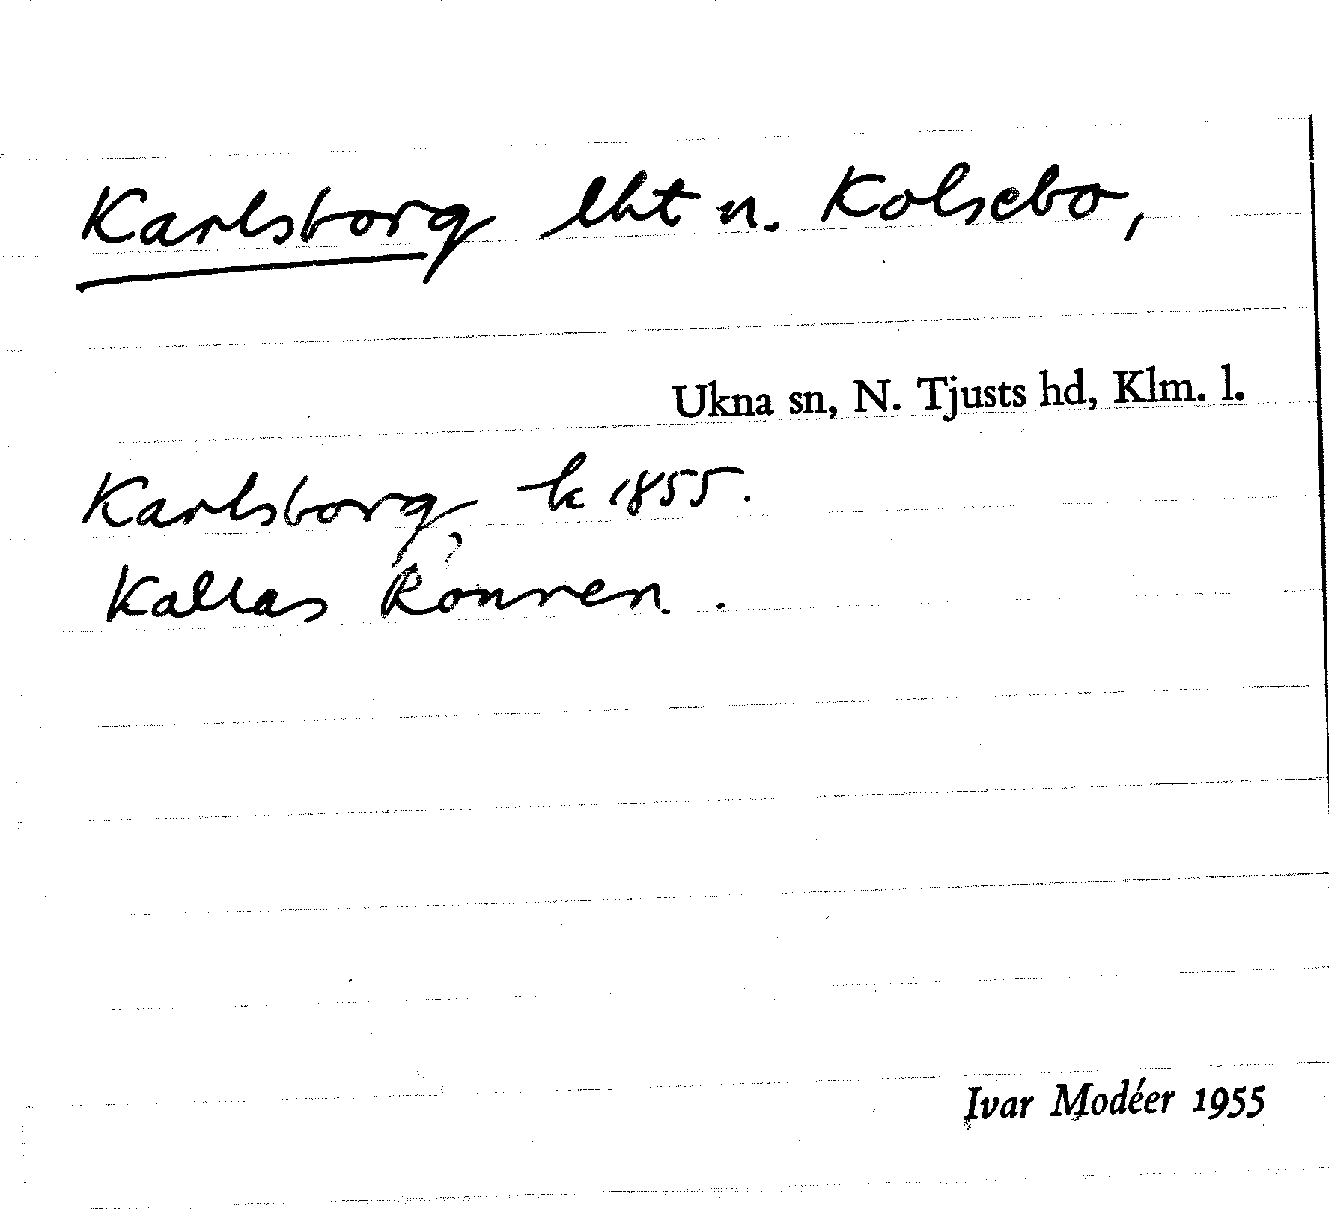 Karlsborg lht u. Kolsebo,
Ukna sn, N. Tjusts hd, Klm. l.
Karlsborg k 1855.
Kallas Ronnen.
Ivar Modéer 1955